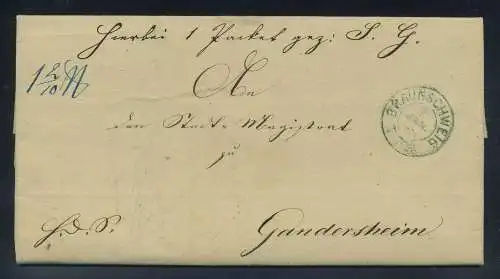 Hierbei 1 Packet gez: S. G.
1 2/10 ℔
An
BRAUNSCHWEIG
den Stadt-Magistrat
zu
H. d. S.
Gandersheim